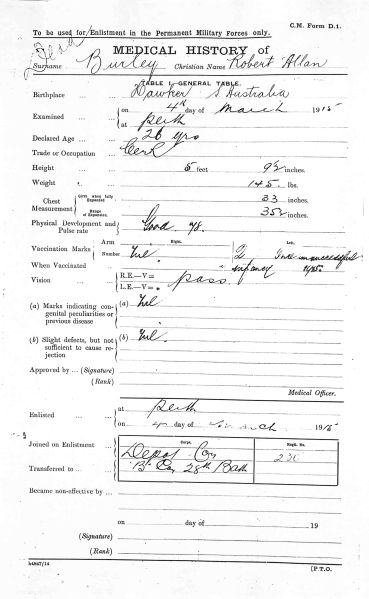 C.M. Form D.1.
To be used for Enlistment in the Permanent Military Forces only.
Dead
MEDICAL HISTORY of
Surname Burley Christian Name Robert Allan
TABLE I.—GENERAL TABLE.
Birthplace ... Hawker S. Australia
Examined ... on 4th day of March 1915
at Perth
Declared Age ... 26 yrs
Trade or Occupation ... Clerk
Height ... 5 feet 9½ inches.
Weight ... 145 lbs.
Chest Measurement Girth when fully Expanded 33 inches.
Range of Expansion 35½ inches.
Physical Development and Pulse rate Good 78.
Vaccination Marks Arm Right. Left.
Number Nil 2
When Vaccinated ... infancy unsuccessful 1915.
Vision ... R.E.—V= pass
L.E.—V=
(a) Marks indicating congenital peculiarities or previous disease (a) Nil
(b) Slight defects, but not sufficient to cause rejection (b) Nil.
Approved by ... (Signature)
(Rank)
Medical Officer.
Enlisted ... at Perth
on 4 day of March 1915
Corps. Regtl. No.
Joined on Enlistment ... Depot Coy 230
Transferred to ... "B" Coy 28th Batt
Became non-effective by ...
on day of 19
(Signature)
(Rank)
[P.T.O.